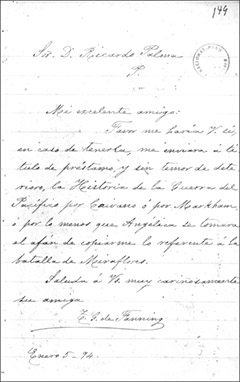 149
Sor. D. Ricardo Palma
P.
Mi excelente amigo:
Favor me haría V. si,
en caso de tenerla, me enviara á tí-
tulo de préstamo, y sin temor de dete-
rioro, la Historia de la Guerra del
Pacífico por Caivano ó por Markham,
ó por lo menos que Angélica se tomara
el afán de copiarme lo referente á la
batalla de Miraflores.
Saluda á V. muy cariñosamente
su amiga
T. G. de Fanning
Enero 5-94.